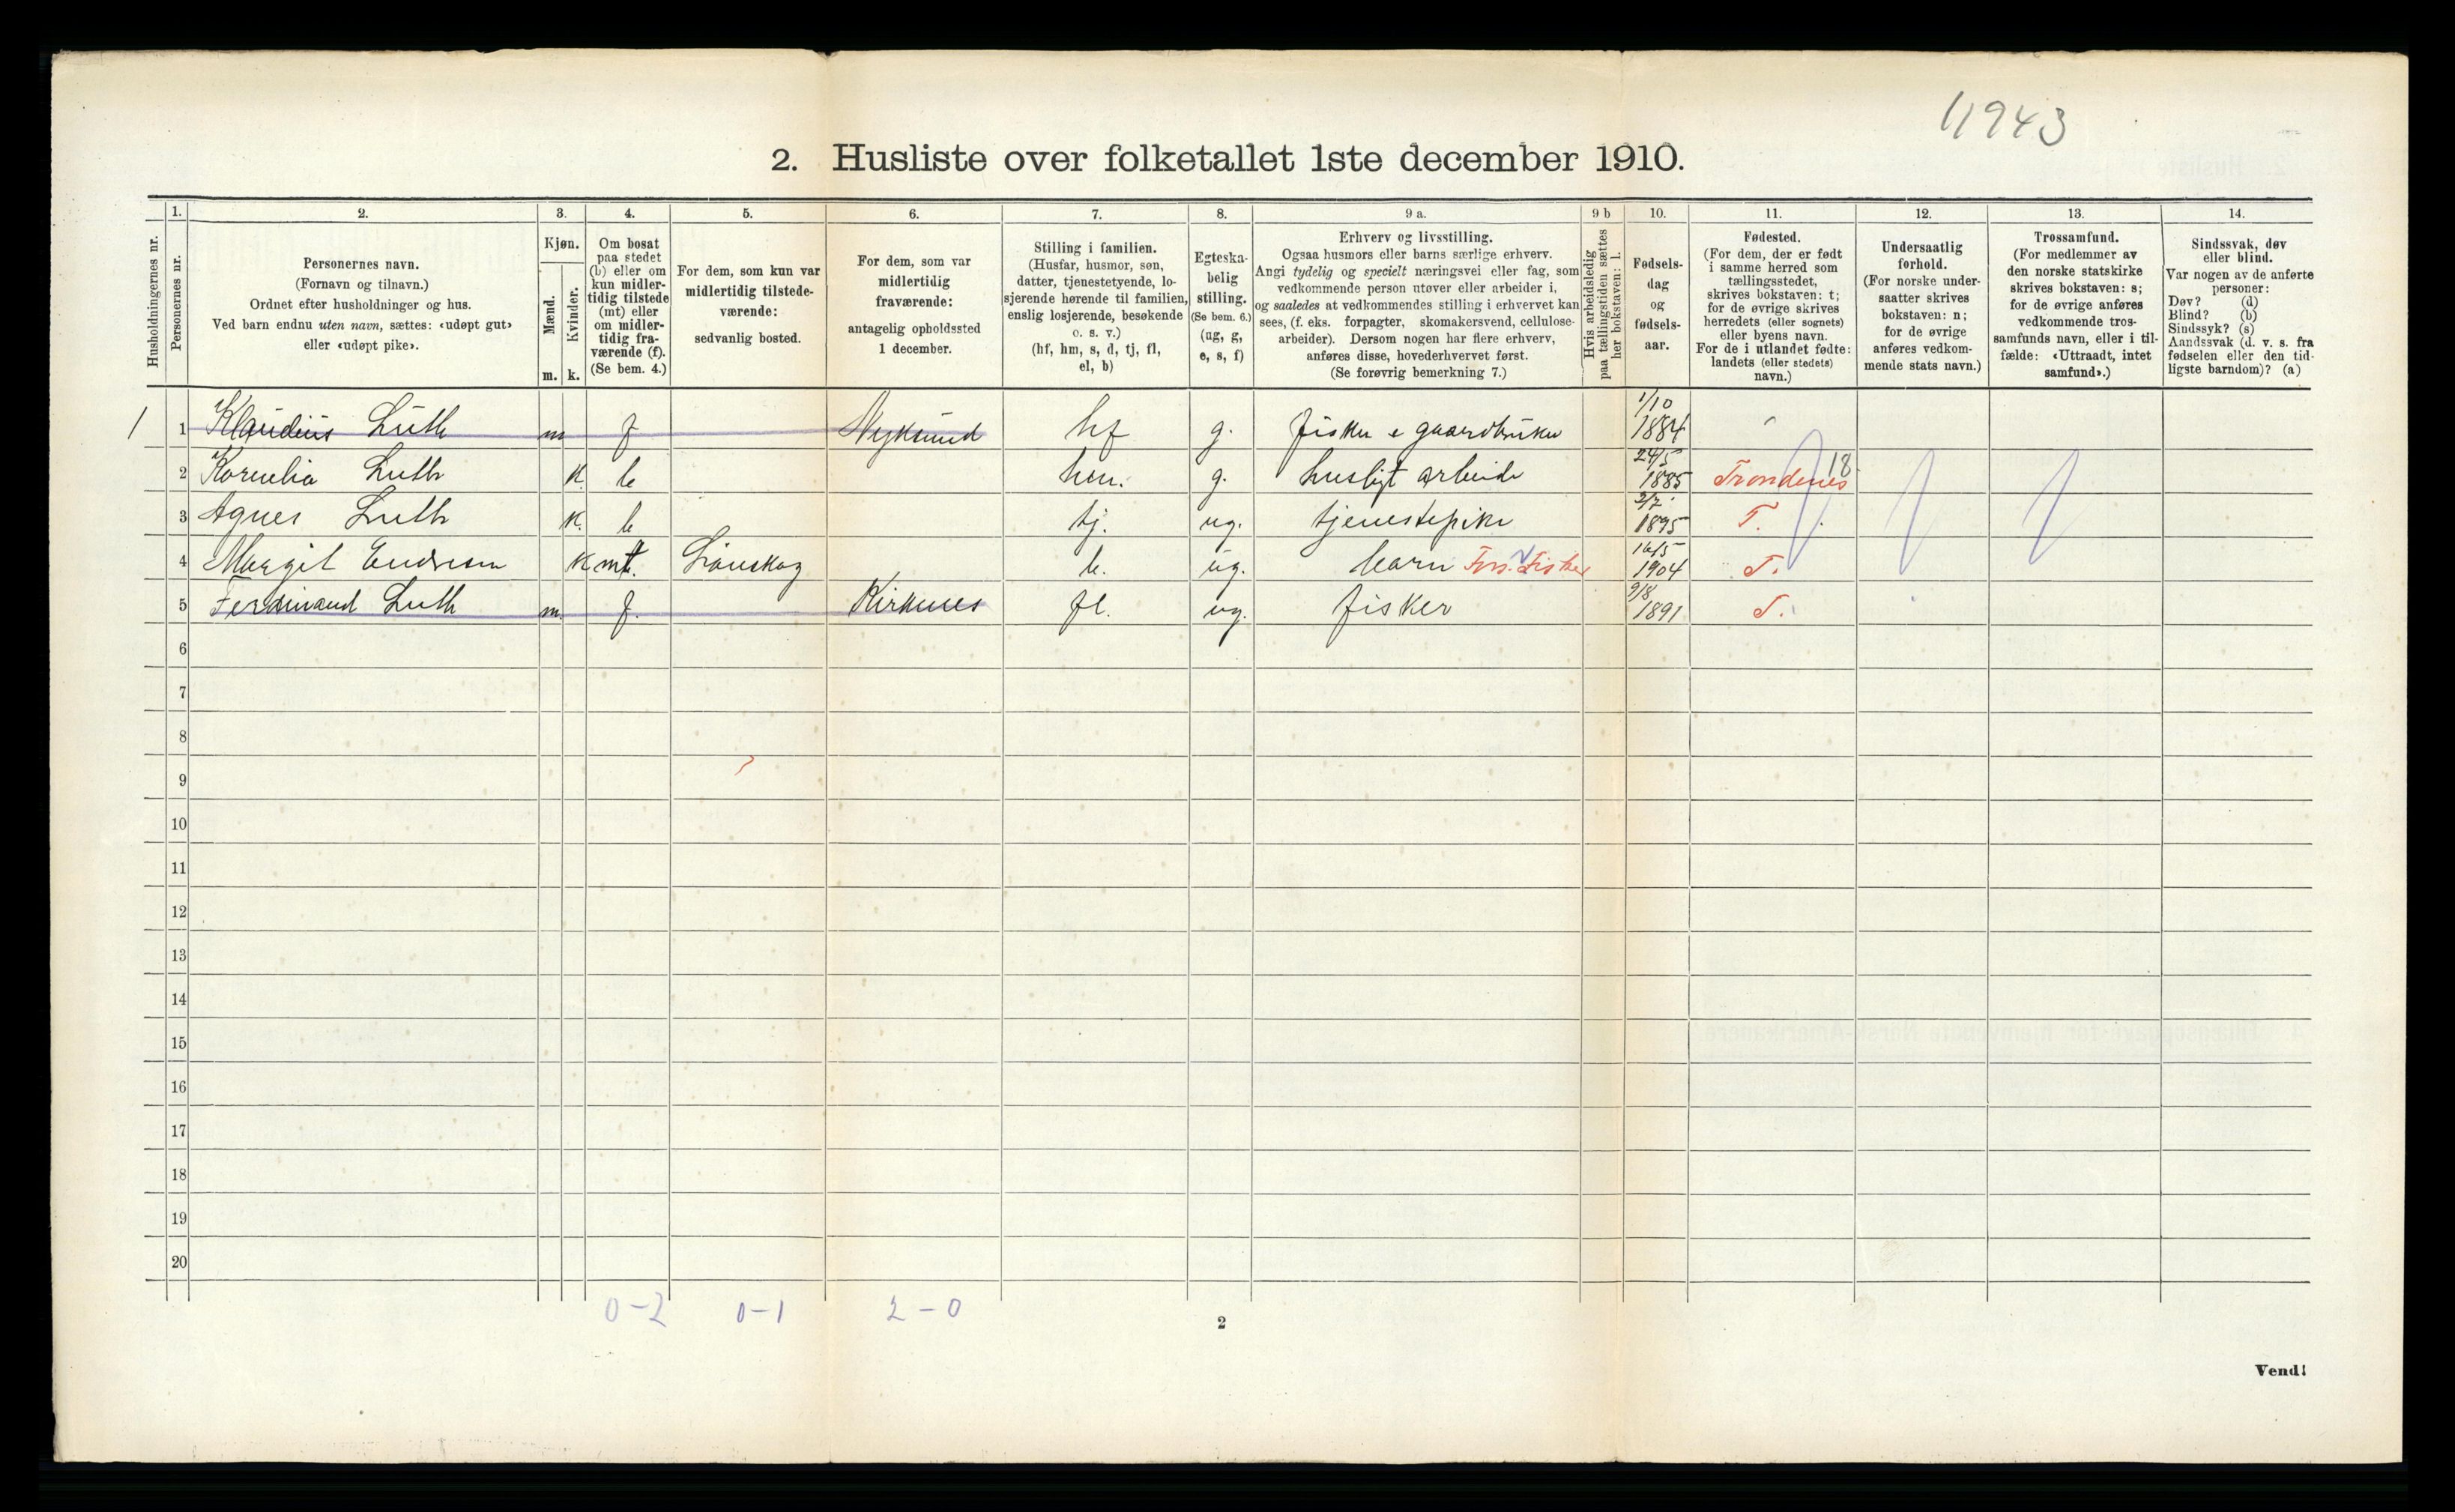 11943
2. Husliste over folketallet 1ste december 1910.
Husholdningernes nr.
1.
Personernes nr.
2.
Personernes navn.
(Fornavn og tilnavn.)
Ordnet efter husholdninger og hus.
Ved barn endnu uten navn, sættes: «udøpt gut»
eller «udøpt pike».
3.
Kjøn.
Mænd.
Kvinder.
m. k.
4.
Om bosat
paa stedet
(b) eller om
kun midler-
tidig tilstede
(mt) eller
om midler-
tidig fra-
værende (f).
(Se bem. 4.)
5.
For dem, som kun var
midlertidig tilstede-
værende:
sedvanlig bosted.
6.
For dem, som var
midlertidig
fraværende:
antagelig opholdssted
1 december.
7.
Stilling i familien.
(Husfar, husmor, søn,
datter, tjenestetyende, lo-
sjerende hørende til familien,
enslig losjerende, besøkende
o. s. v.)
(hf, hm, s, d, tj, fl,
el, b)
8.
Egteska-
belig
stilling.
(Se bem. 6.)
(ug, g,
e, s, f)
9 a.
Erhverv og livsstilling.
Ogsaa husmors eller barns særlige erhverv.
Angi tydelig og specielt næringsvei eller fag, som
vedkommende person utøver eller arbeider i,
og saaledes at vedkommendes stilling i erhvervet kan
sees, (f. eks. forpagter, skomakersvend, cellulose-
arbeider). Dersom nogen har flere erhverv,
anføres disse, hovederhvervet først.
(Se forøvrig bemerkning 7.)
9 b
Hvis arbeidsledig
paa tællingstiden sættes
her bokstaven: l.
10.
Fødsels-
dag
og
fødsels-
aar.
11.
Fødested.
(For dem, der er født
i samme herred som
tællingsstedet,
skrives bokstaven: t;
for de øvrige skrives
herredets (eller sognets)
eller byens navn.
For de i utlandet fødte:
landets (eller stedets)
navn.)
12.
Undersaatlig
forhold.
(For norske under-
saatter skrives
bokstaven: n;
for de øvrige
anføres vedkom-
mende stats navn.)
13.
Trossamfund.
(For medlemmer av
den norske statskirke
skrives bokstaven: s;
for de øvrige anføres
vedkommende tros-
samfunds navn, eller i til-
fælde: «Uttraadt, intet
samfund».)
14.
Sindssvak, døv
eller blind.
Var nogen av de anførte
personer:
Døv? (d)
Blind? (b)
Sindssyk? (s)
Aandssvak (d. v. s. fra
fødselen eller den tid-
ligste barndom)? (a)
1 1 Klaudius Luth m f Nyksund hf g. fisker & gaardbruker 1/10 1884
2 Kornelia Luth k b hm. g. husligt arbeide 24/5 1885 Trondenes 18
3 Agnes Luth k. b tj. ug. tjenestepike 2/7 1895 T.
4 Margit Endresen k mt. Liavskog b. ug. barn Fors. Fisker 16/5 1904 T.
5 Ferdinand Luth m. f. Kirkenes fl. ug. fisker 9/8 1891 T.
6
7
8
9
10
11
12
13
14
15
16
17
18
19
20
0-2 0-1 2-0
2
Vend!